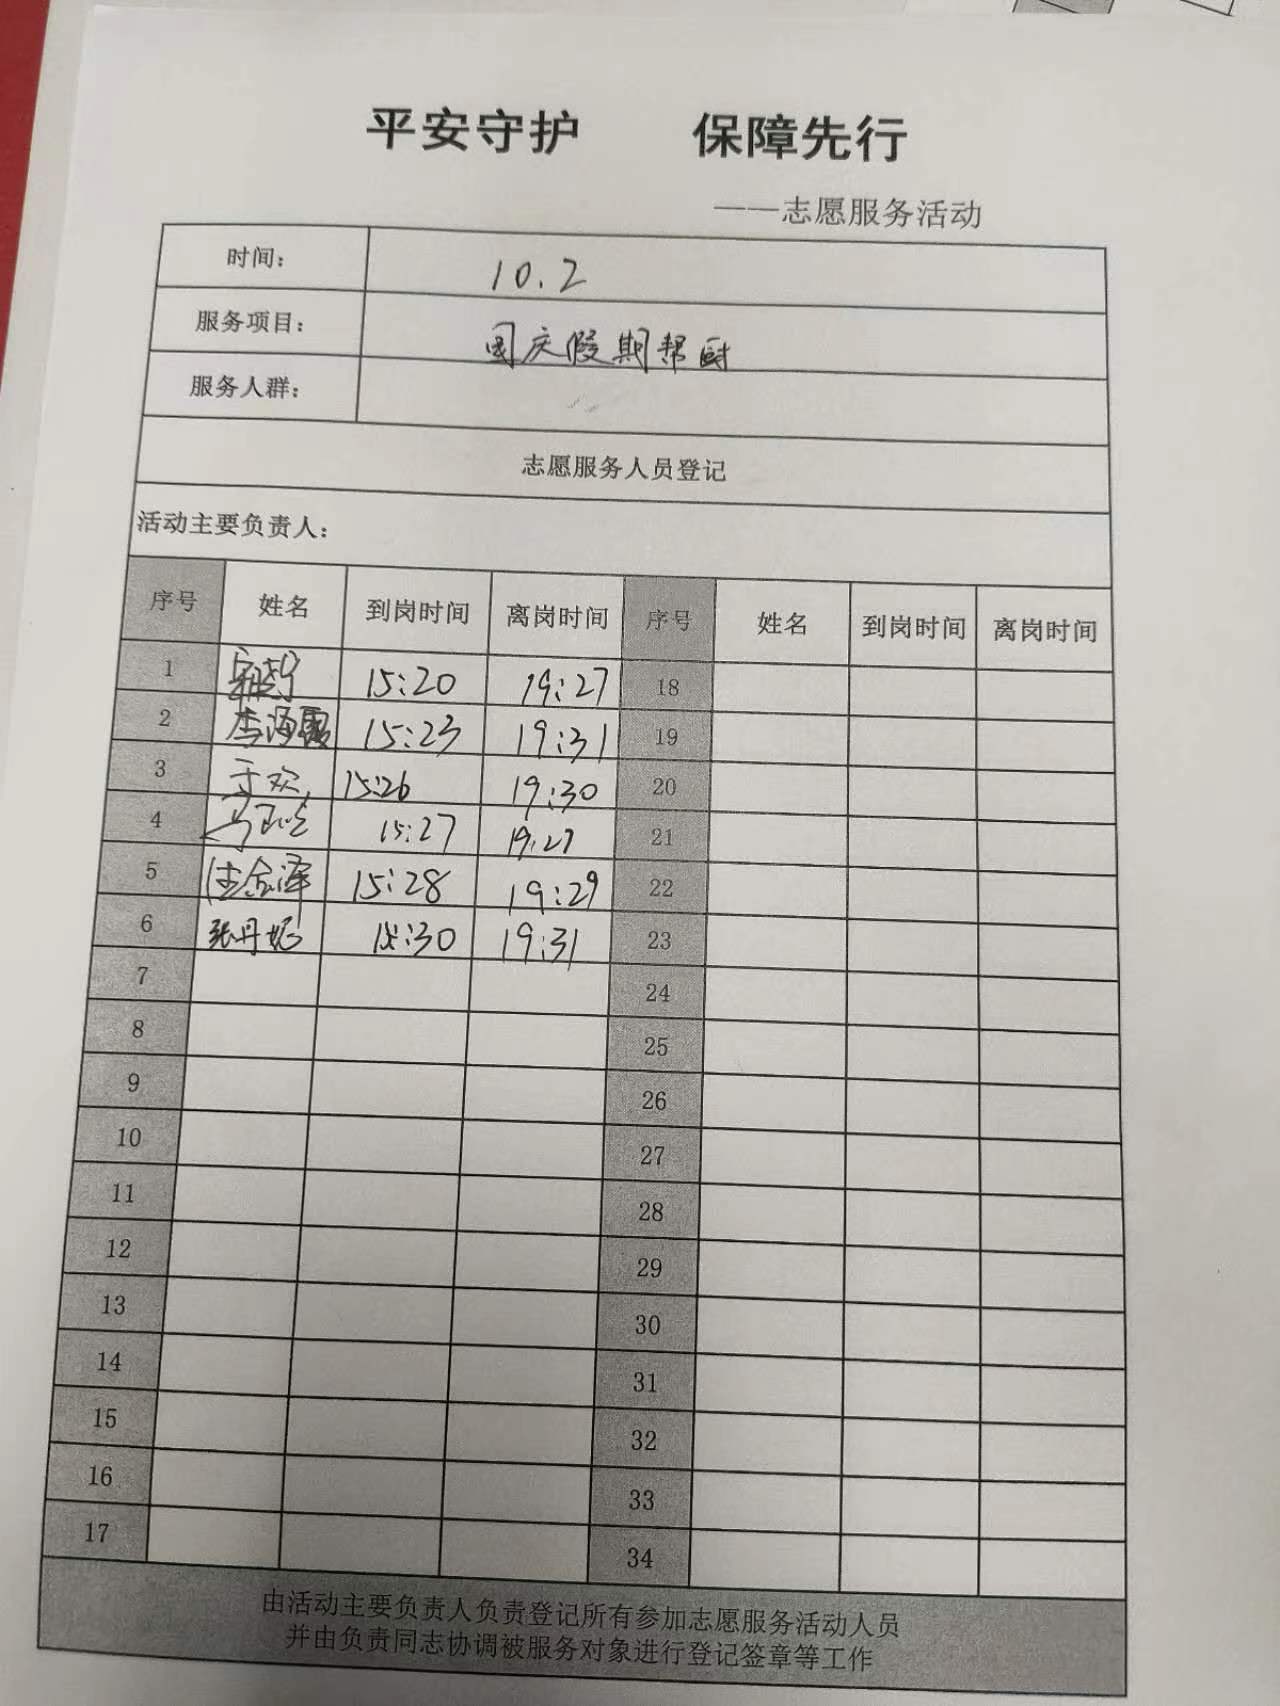 平安守护 保障先行
——志愿服务活动
时间： 10.2
服务项目： 国庆假期帮厨
服务人群：
志愿服务人员登记
活动主要负责人：
序号 姓名 到岗时间 离岗时间 序号 姓名 到岗时间 离岗时间
1 15:20 19:27 18
2 李海霞 15:23 19:31 19
3 于欢 15:26 19:30 20
4 15:27 19:27 21
5 金泽 15:28 19:29 22
6 张丹妮 15:30 19:31 23
7 24
8 25
9 26
10 27
11 28
12 29
13 30
14 31
15 32
16 33
17 34
由活动主要负责人负责登记所有参加志愿服务活动人员
并由负责同志协调被服务对象进行登记签章等工作